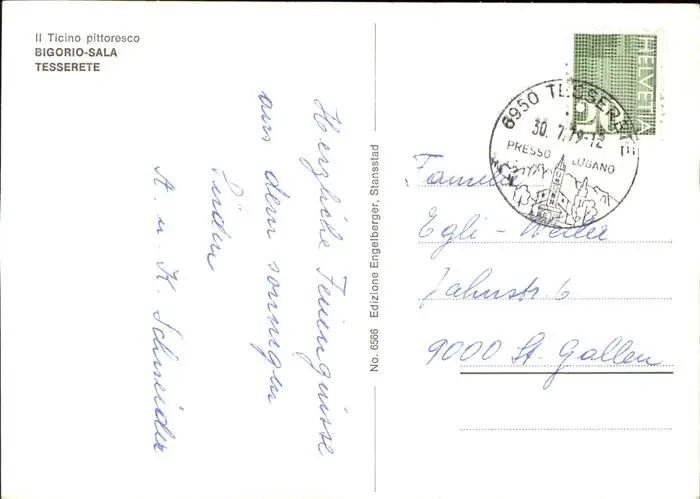 Il Ticino pittoresco
BIGORIO-SALA
TESSERETE
Herzliche Feriengrüsse
aus dem sonnigen
Süden
A. u. K. Schneider
No. 6566 Edizione Engelberger, Stansstad
HELVETIA
6950 TESSERETE
30.7.79-12
PRESSO LUGANO
Familie
Egli - Weiler
Jahnstr. 6
9000 St. Gallen